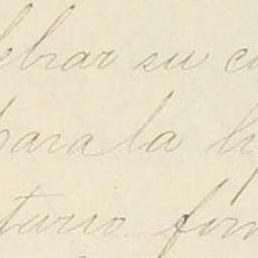 lebrar su c
para la h
tario fir